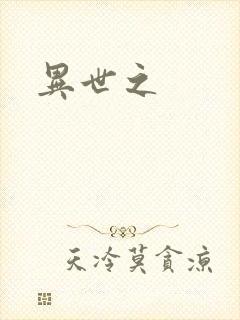 異世之
天冷莫貪涼